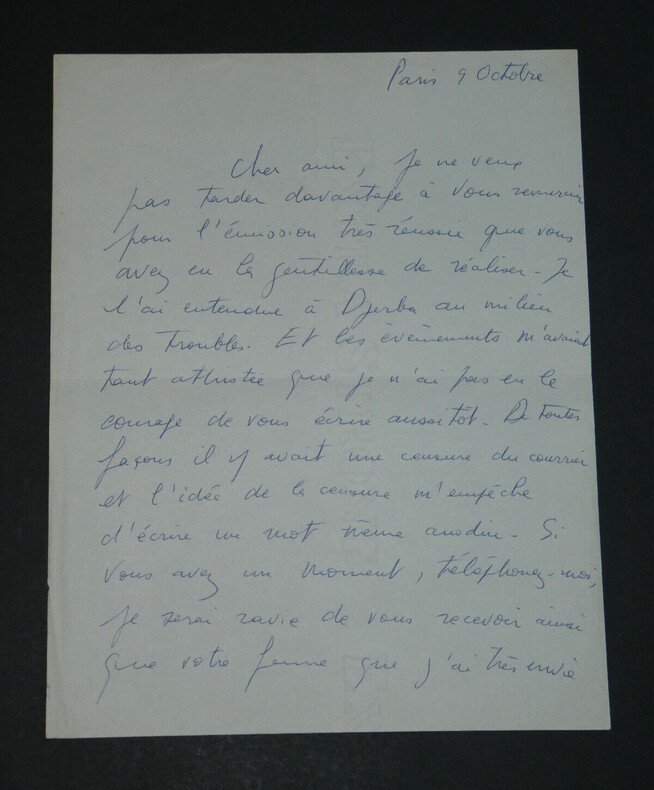 Paris 9 Octobre
Cher ami, je ne veux
pas tarder davantage à vous remercier
pour l'émission très réussie que vous
avez eu la gentillesse de réaliser - Je
l'ai entendue à Djerba au milieu
des troubles. Et les évènements m'avaient
tant attristée que je n'ai pas eu le
courage de vous écrire aussitôt. De toutes
façons il y avait une censure du courrier
et l'idée de la censure m'empêche
d'écrire un mot même anodin - Si
vous avez un moment, téléphonez-moi,
je serai ravie de vous recevoir ainsi
que votre femme que j'ai très envie